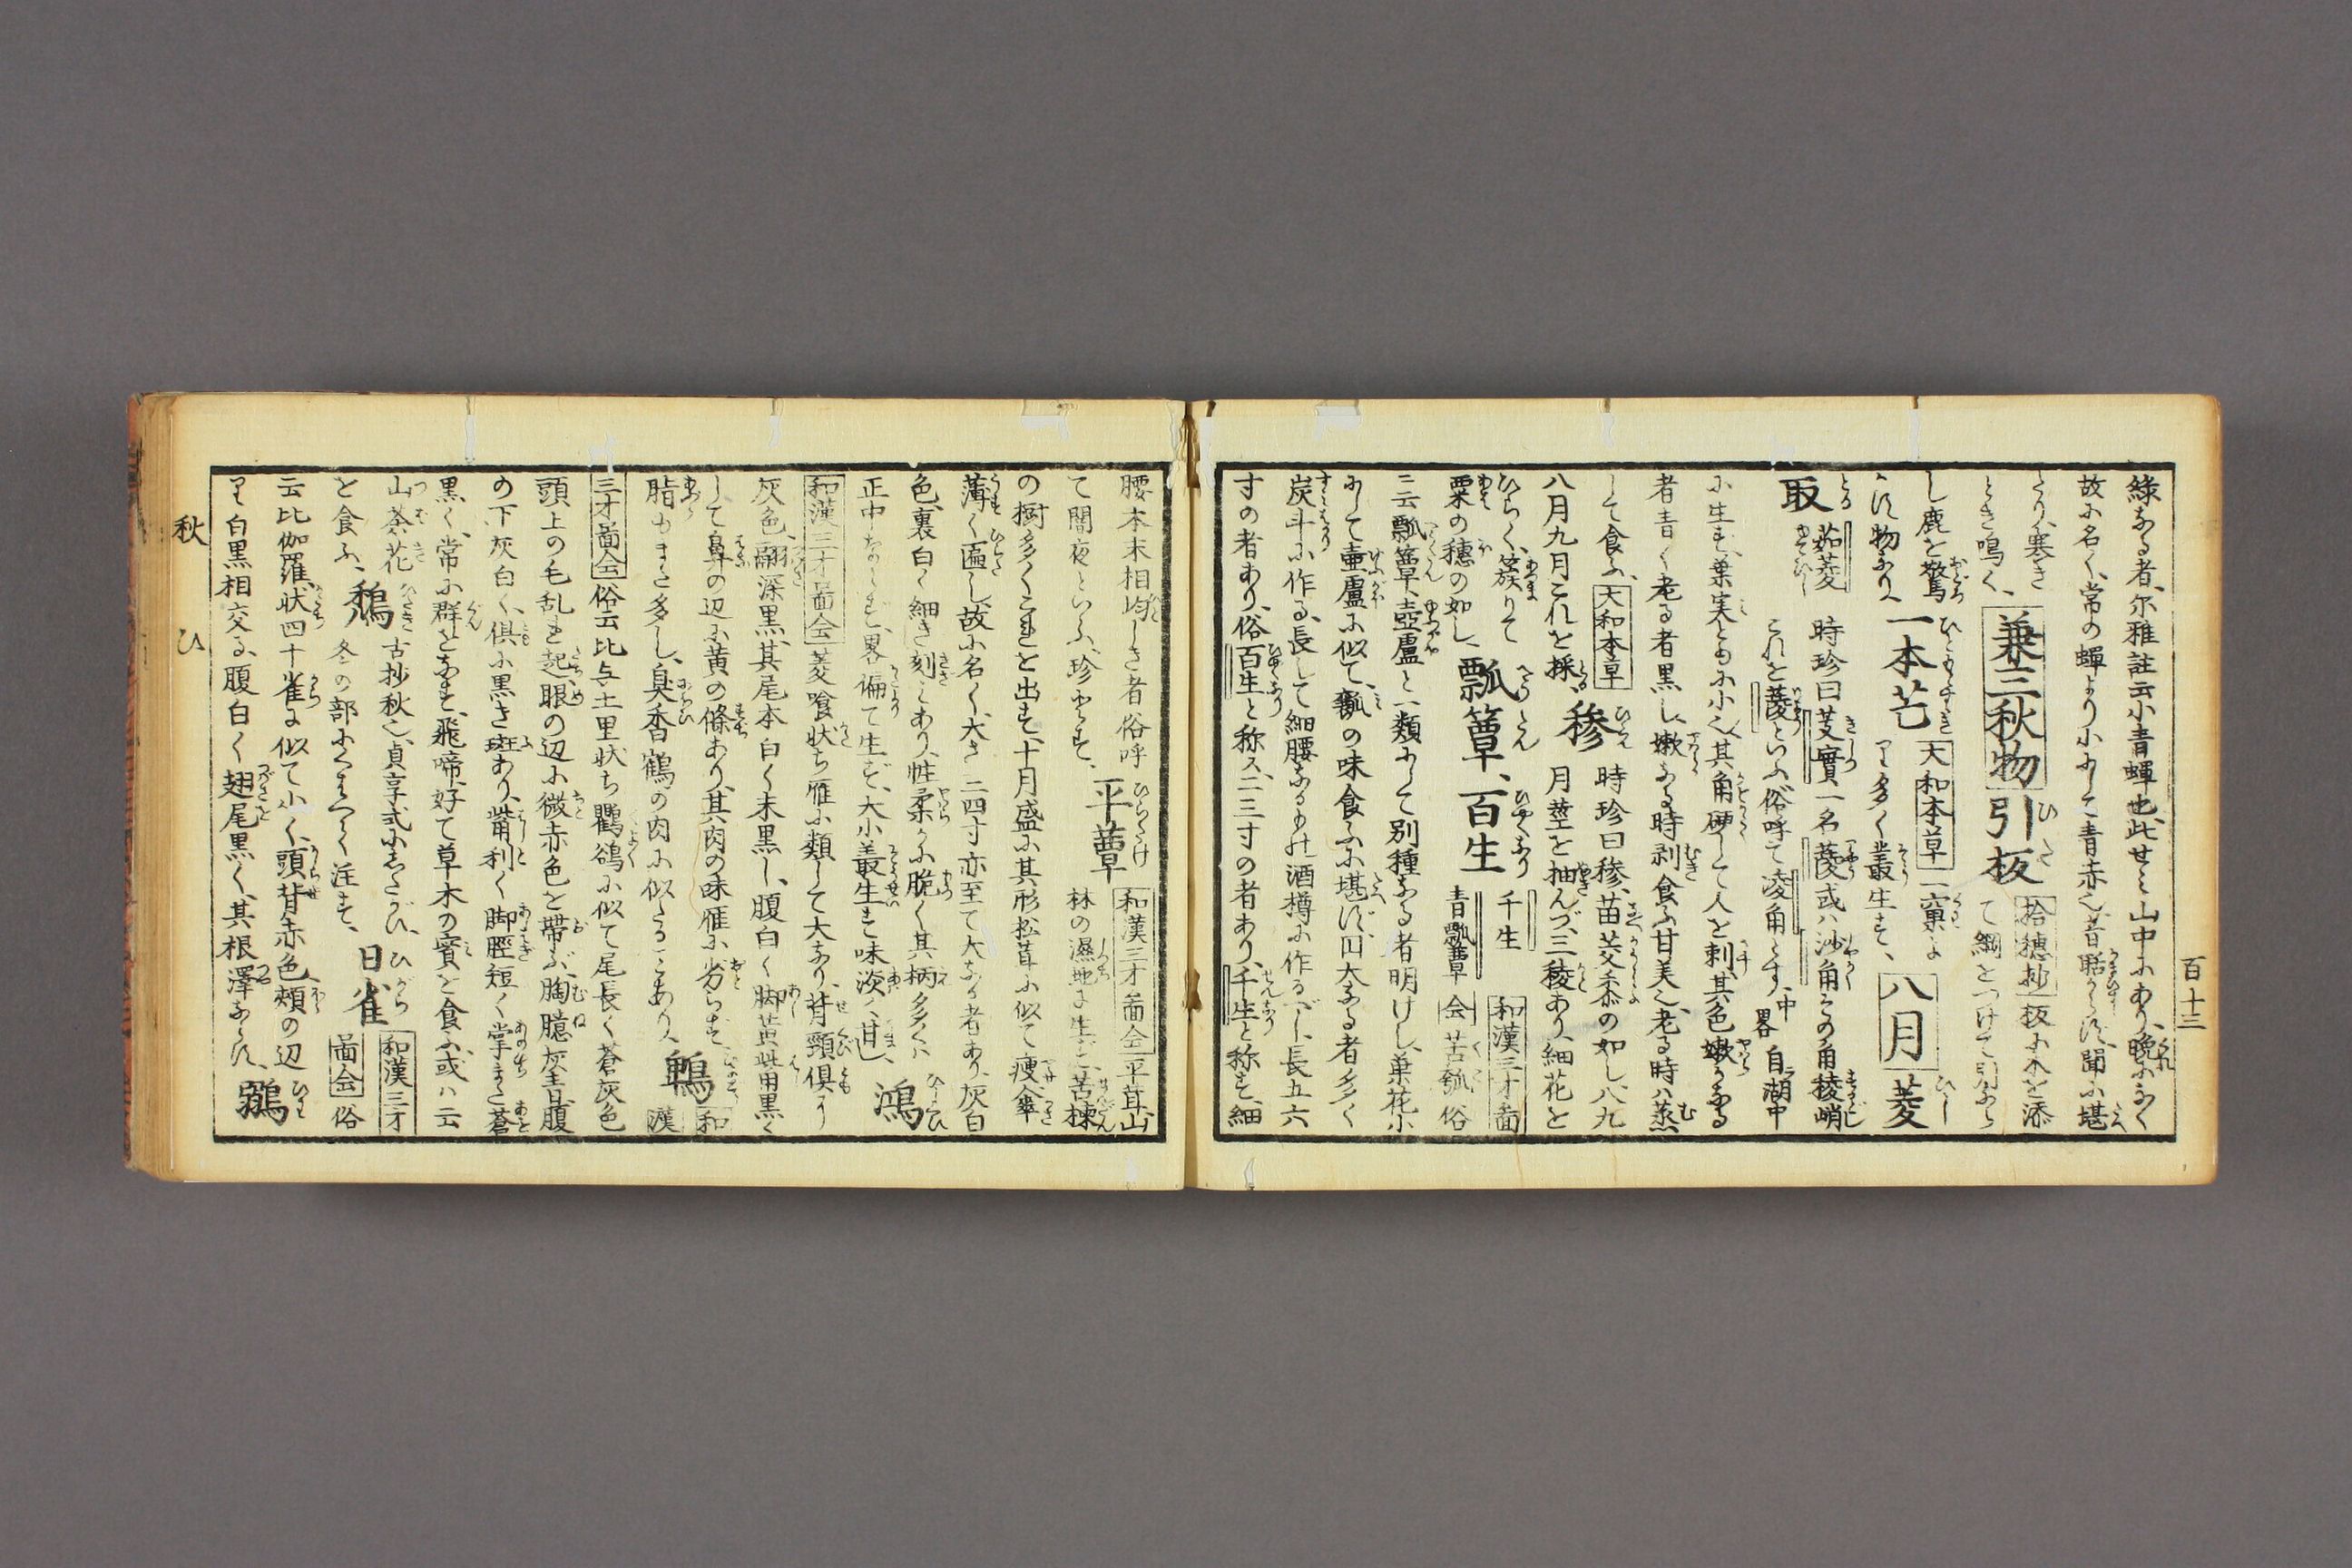 百十三
緑なる者、尓雅註云小青蟬也、此せミ山中にあり、晩になく
故に名く、常の蟬より小にして青赤し、音聒からず、聞に堪
たり、寒き
とき鳴く、
兼三秋物
引板
拾穂抄
板に木を添
て綱をつけて引なら
し鹿を驚
かす物なり、
一本芒
大和本草
一窠に
多く叢生す、
八月
菱
取
茹菱
時珍曰芰實一名菱或ハ沙角その角稜峭
これを菱といふ俗呼て淩角とす、中畧自湖中
に生ず、葉実ともに小し、其角硬して人を刺、其色嫩なる
者青く老る者黒し、嫩なる時剥食ふ甘美し、老る時ハ蒸
して食ふ、
大和本草
八月九月これを採、
穇
時珍曰穇、苗茭黍の如し、八九
月莖を抽んづ、三稜あり、細花を
ひらく、簇りて
粟の穂の如し、
瓢簟、百生
千生
青瓢蕈
和漢三才啚
会
苦瓠俗
ニ云瓢簟、壺盧と一類にして別種なる者明けし、葉花小
にして壷盧に似て、瓠の味食ふに堪ず、円大なる者多く
炭斗に作る、長して細腰なるもの酒樽に作るべし、長五六
寸の者あり、俗百生と称ス、二三寸の者あり、千生と称す、細
腰本末相均しき者俗呼
て闇夜といふ、珍とす、
平蕈
和漢三才啚会
平茸山
林の濕地に生ず、苦楝
の樹多くこれを出す、十月盛に其形松茸に似て瘦傘
薄く匾し、故に名く、大さ三四寸亦至て大なる者あり、灰白
色、裏白く細き刻ミあり、性柔かに脆く其柄多くハ
正中ならず、畧偏て生ず、大小叢生す味淡ク、甘し、
鴻
和漢三才啚会
菱喰状ち雁に類して大なり、背頸倶に
灰色、翮深黒、其尾本白く末黒し、腹白く脚黄觜黒く
して鼻の辺に黄の條あり、其肉の味雁に劣らず、
脂もまた多し、臭香鶴の肉に似たることあり、
鵯
和
漢
三才啚会
俗云比与土里状ち鸜鵒に似て尾長く蒼灰色
頭上の毛乱れ起、眼の辺に微赤色を帶ぶ、胸臆灰青、腹
の下灰白く、倶に黒き斑あり、觜利く脚脛短く掌また蒼
黒く、常に群をなす、飛啼、好て草木の實を食ふ、或ハ云
山茶花
を食ふ、
鵚
古抄秋し、貞享式にしたがひ、
冬の部にくはへく注す、
日雀
和漢三才
啚会
俗
云比伽羅、状四十雀に似て小く、頭背赤色、頬の辺
白黒相交る、腹白く翅尾黒く、其根澤ならず、
鶸
秋
ひ